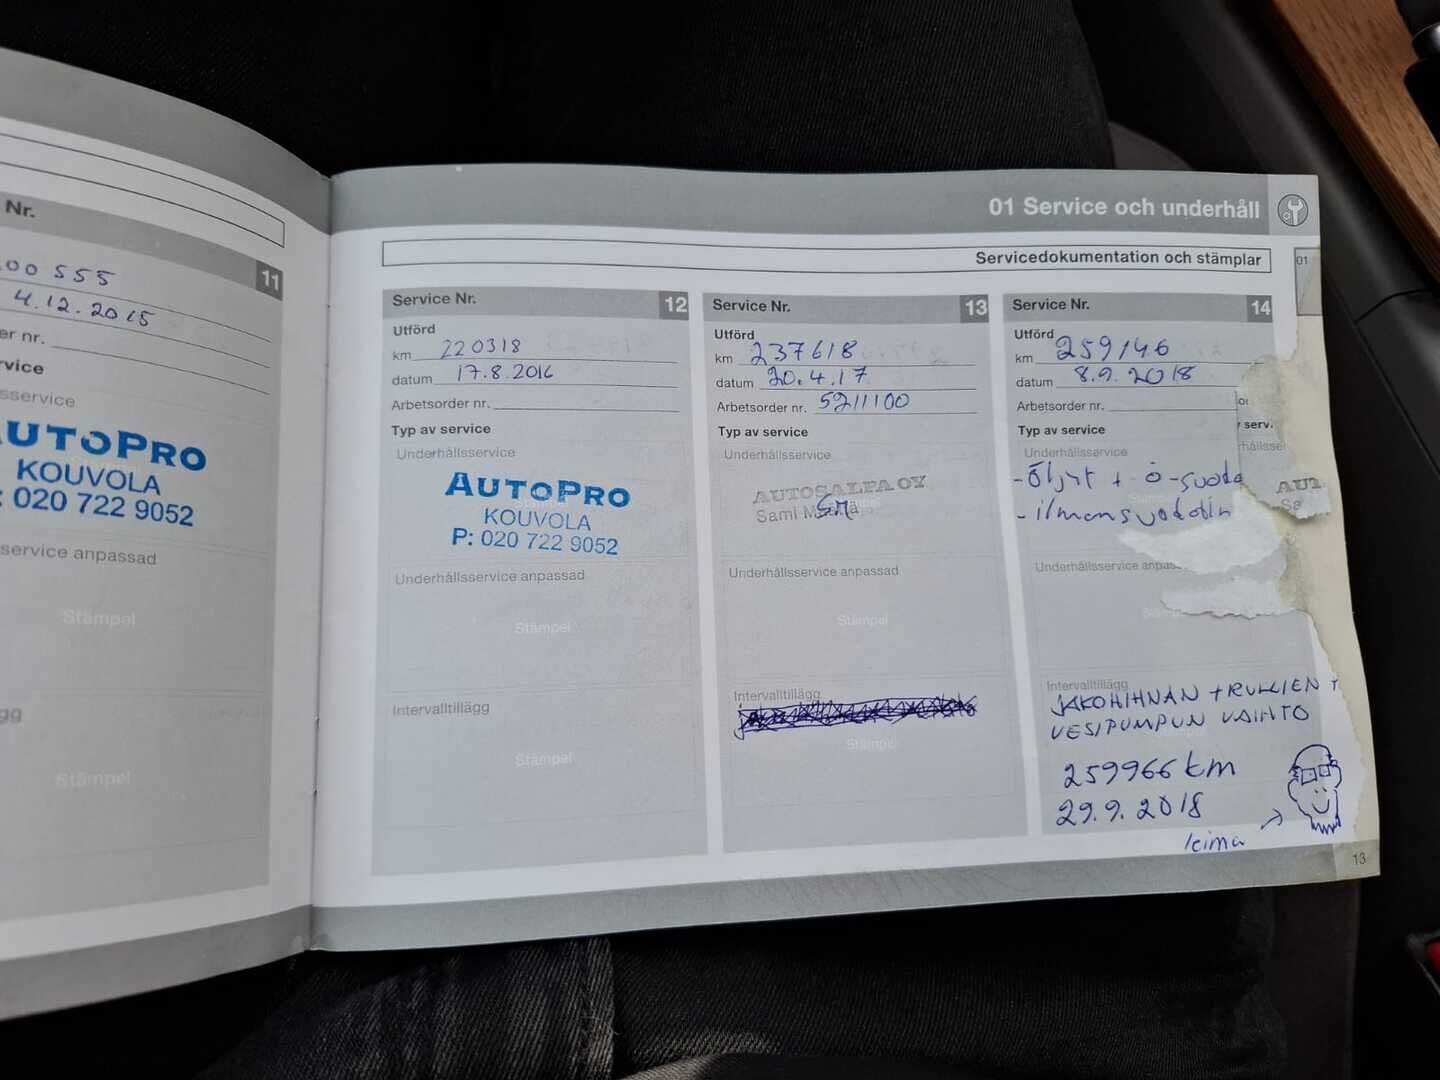 Nr.
11
00 555
4.12.2015
er nr.
rvice
sservice
AUTOPRO
KOUVOLA
: 020 722 9052
service anpassad
Stämpel
gg
Stämpel
01 Service och underhåll
Servicedokumentation och stämplar
01
Service Nr. 12
Utförd
km 220318
datum 17.8.2016
Arbetsorder nr.
Typ av service
Underhållsservice
AUTOPRO
KOUVOLA
P: 020 722 9052
Underhållsservice anpassad
Stämpel
Intervalltillägg
Stämpel
Service Nr. 13
Utförd
km 237618
datum 20.4.17
Arbetsorder nr. 5211100
Typ av service
Underhållsservice
AUTOSALPA OY
Sami
Underhållsservice anpassad
Stämpel
Intervalltillägg
Stämpel
Service Nr. 14
Utförd
km 259146
datum 8.9.2018
Arbetsorder nr.
Typ av service
Underhållsservice
- Öljyt + ö-suoda
- ilmansuodatin
Underhållsservice anpass
Intervalltillägg
JAKOHIHNAN + RULLIEN +
VESIPUMPUN VAIHTO
259966 km
29.9.2018
leima
13